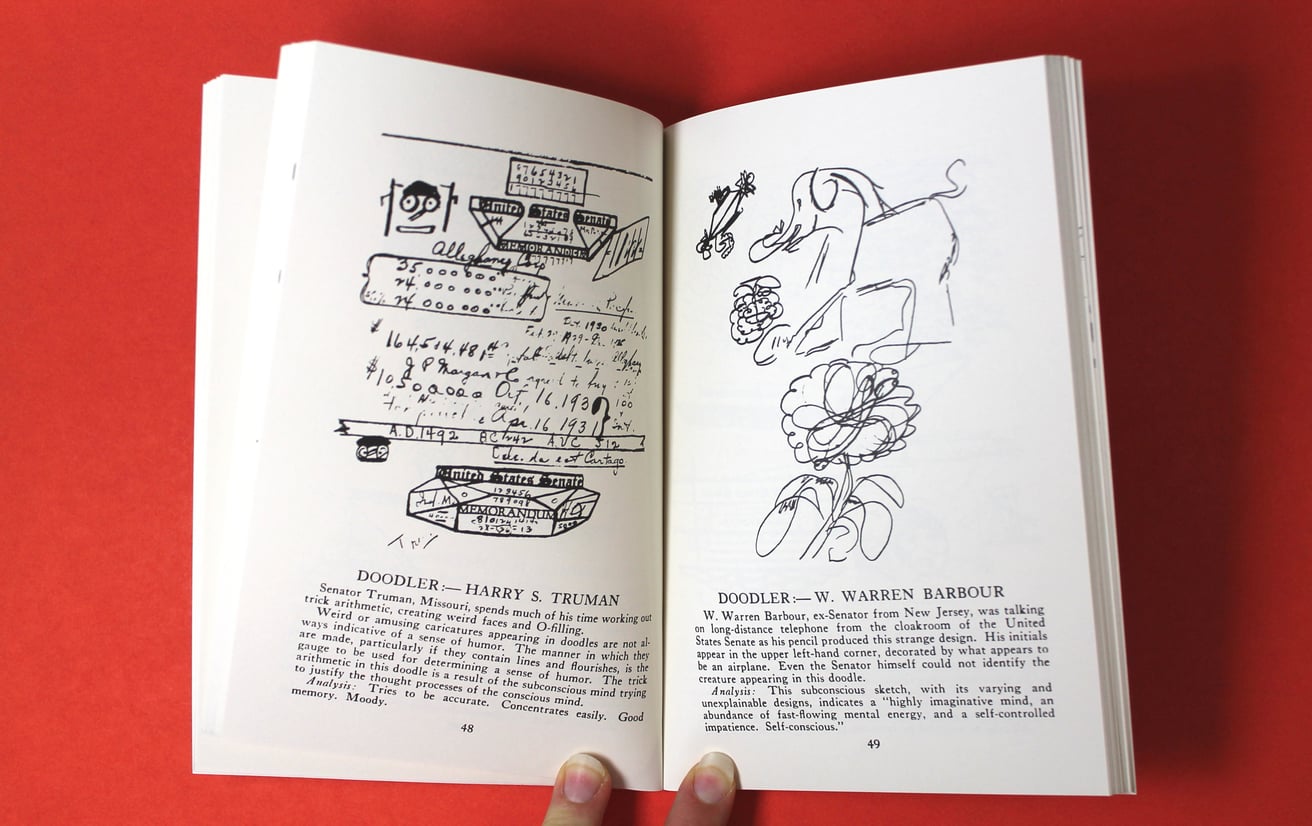 67654321
90123456
United States Senate
MEMORANDUM
Alleghany Corp
35 000000
24 000000
24 000000
Oct. 1930
J P Morgan & Co agreed to buy
$10,500,000 Oct. 16, 193
Apr. 16 193
100
Int.
A.D. 1492 B.C. 242 A.U.C. 512
est Cartago
United States Senate
123456
MEMORANDUM
DOODLER:— HARRY S. TRUMAN
Senator Truman, Missouri, spends much of his time working out
trick arithmetic, creating weird faces and O-filling.
Weird or amusing caricatures appearing in doodles are not al-
ways indicative of a sense of humor. The manner in which they
are made, particularly if they contain lines and flourishes, is the
gauge to be used for determining a sense of humor. The trick
arithmetic in this doodle is a result of the subconscious mind trying
to justify the thought processes of the conscious mind.
Analysis: Tries to be accurate. Concentrates easily. Good
memory. Moody.
48
DOODLER:— W. WARREN BARBOUR
W. Warren Barbour, ex-Senator from New Jersey, was talking
on long-distance telephone from the cloakroom of the United
States Senate as his pencil produced this strange design. His initials
appear in the upper left-hand corner, decorated by what appears to
be an airplane. Even the Senator himself could not identify the
creature appearing in this doodle.
Analysis: This subconscious sketch, with its varying and
unexplainable designs, indicates a “highly imaginative mind, an
abundance of fast-flowing mental energy, and a self-controlled
impatience. Self-conscious.”
49